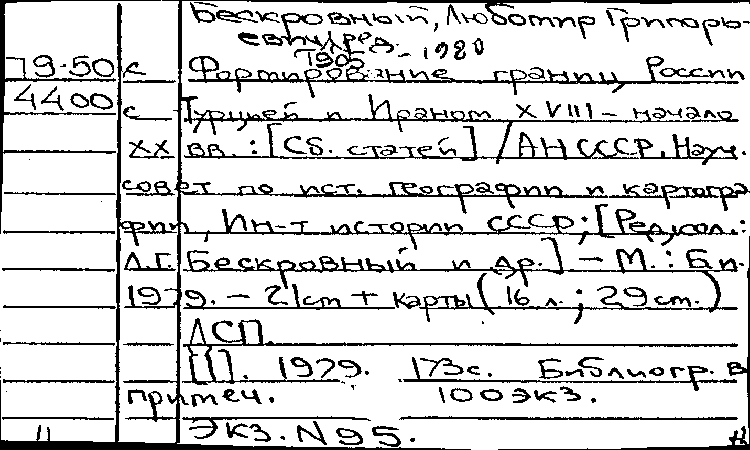 Бескровный, Любомир Григорь-
евич, ред.
1905 - 1980
79-50 с Формирование границ России
4400 с Турцией и Ираном XVIII - начало
XX вв. : [Сб. статей] / АН СССР, Науч.
совет по ист. географии и картогра
фии, Ин-т истории СССР; [Ред.кол.:
Л.Г. Бескровный и др.] - М. : Б.и.
1979. - 21 cm + карты (16 л. ; 29 cm.)
ДСП.
[I]. 1979. 173с. Библиогр. в
примеч. 100 экз.
11 Экз. N 95.